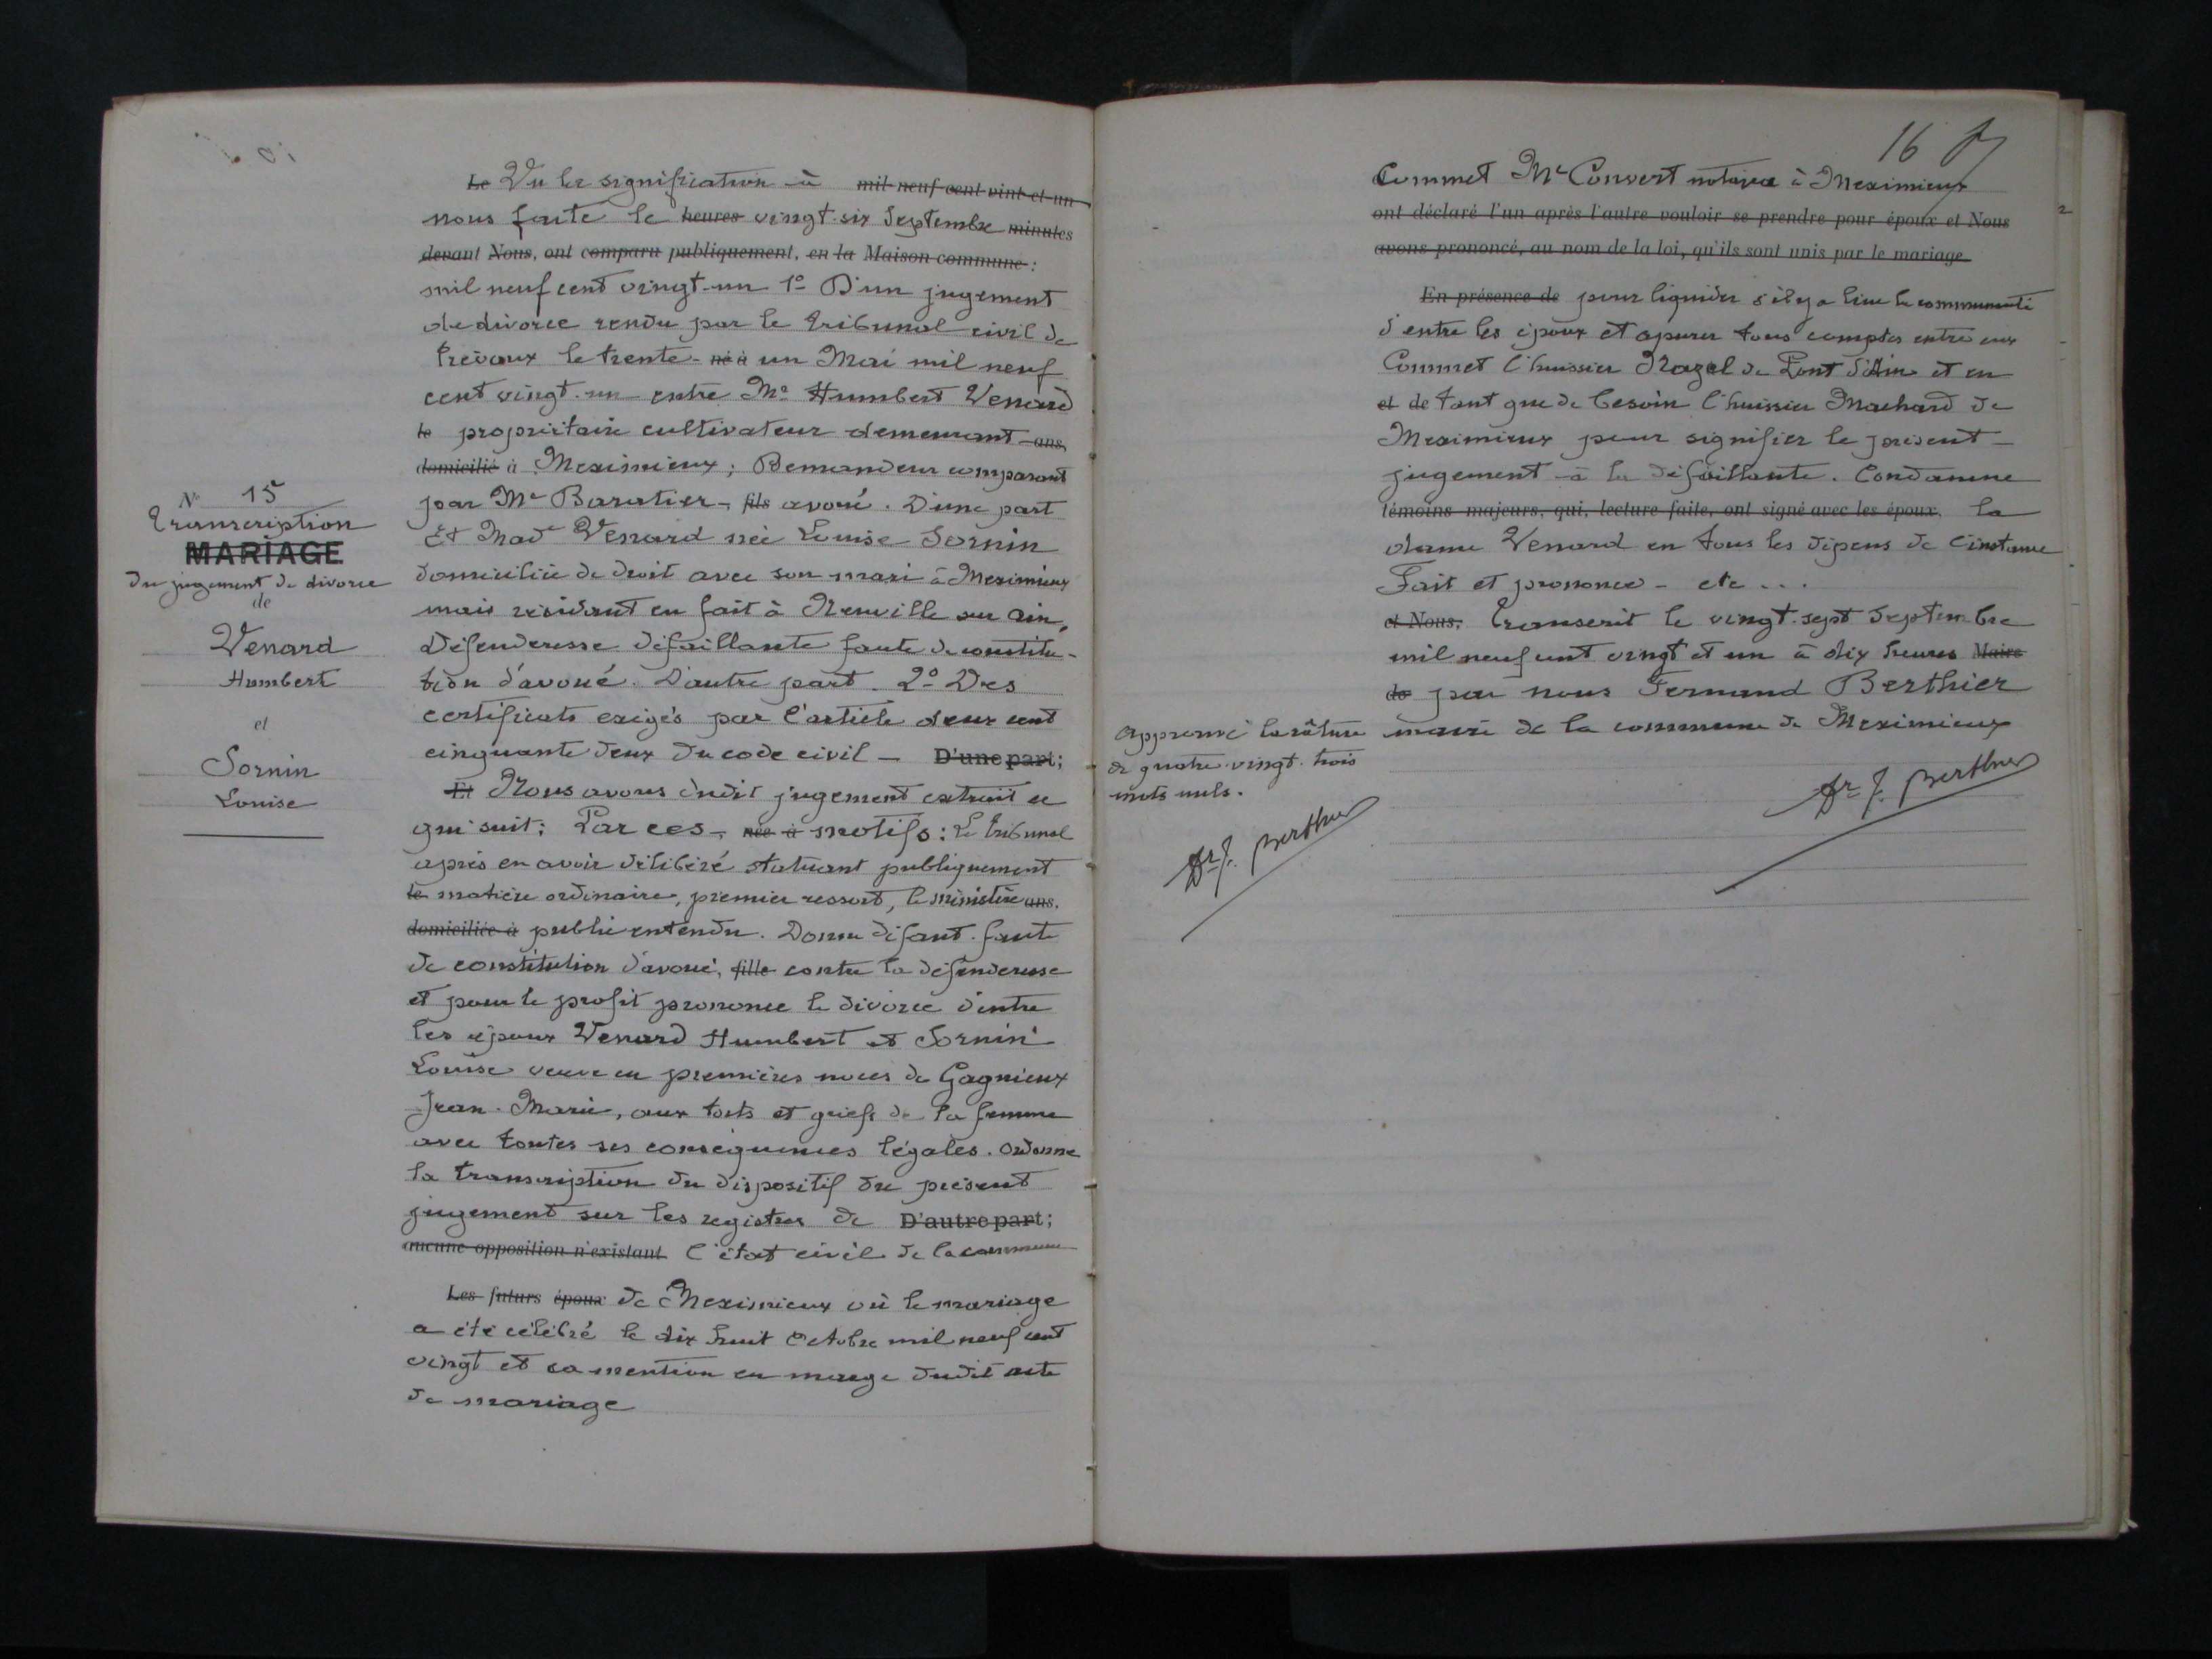 N° 15
Transcription
MARIAGE
du jugement de divorce
de
Venard
Humbert
et
Sornin
Louise
Le Vu la signification à mil neuf cent vint et un
nous faite le heures vingt-six Septembre minutes
devant Nous, ont comparu publiquement, en la Maison commune :
mil neuf cent vingt-un 1° D'un jugement
de divorce rendu par le tribunal civil de
Trévoux le trente- né à un Mai mil neuf
cent vingt-un entre Mr Humbert Venard
le propriétaire cultivateur demeurant ans
domicilié à Meximieux ; Demandeur comparant
par Me Baratier- fils avoué. D'une part
Et Made Venard née Louise Sornin
domiciliée de droit avec son mari à Meximieux
mais résidant en fait à Neuville sur Ain,
Défenderesse défaillante faute de constitu-
tion d'avoué. D'autre part. 2° Des
certificats exigés par l'article deux cent
cinquante deux du code civil - D'une part;
Et Nous avons dudit jugement extrait ce
qui suit; Par ces- née à motifs: Le tribunal
après en avoir délibéré statuant publiquement
le matière ordinaire, premier ressort, le ministère ans.
domiciliée à public entendu. Donne défaut-faute
de constitution d'avoué, fille contre la défenderesse
et pour le profit prononce le divorce d'entre
les époux Venard Humbert et Sornin
Louise veuve en premières noces de Gagnieux
Jean-Marie, aux torts et griefs de la femme
avec toutes ses conséquences légales. Ordonne
la transcription du dispositif du présent
jugement sur les registres de D'autre part;
aucune opposition n'existant l'état civil de la commune
Les futurs époux de Meximieux où le mariage
a été célébré le dix huit Octobre mil neuf cent
vingt et sa mention en marge dudit acte
de mariage
16
Commet Me Convert notaire à Meximieux
ont déclaré l'un après l'autre vouloir se prendre pour époux et Nous
avons prononcé, au nom de la loi, qu'ils sont unis par le mariage
En présence de pour liquider s'il y a lieu la communauté
d'entre les époux et apurer tous comptes entre eux
Commet l'huissier Nazel de Pont d'Ain et en
et de tant que de besoin l'huissier Machard de
Meximieux pour signifier le présent
jugement à la défaillante. Condamne
témoins majeurs, qui, lecture faite, ont signé avec les époux. la
dame Venard en tous les dépens de l'instance
Fait et prononcé - etc...
et Nous, Transcrit le vingt-sept Septembre
mil neuf cent vingt et un à dix heures Maire
de par nous Fernand Berthier
maire de la commune de Meximieux
Dr F. Berthier
Approuvé la râture
de quatre-vingt-trois
mots nuls.
Dr F. Berthier